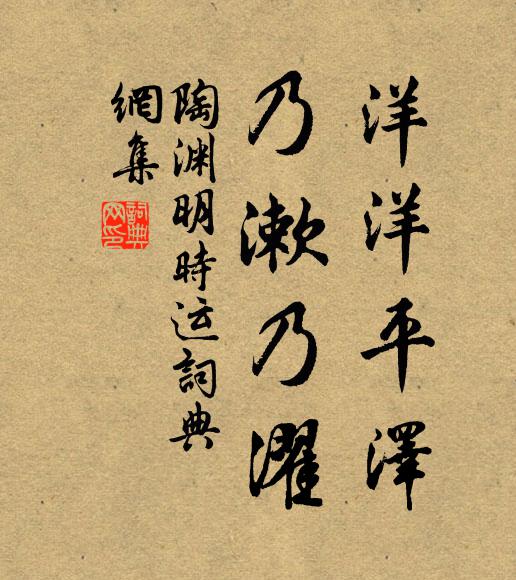 洋洋平澤
乃漱乃濯
陶渊明時运詞典
網集
詞典
网印